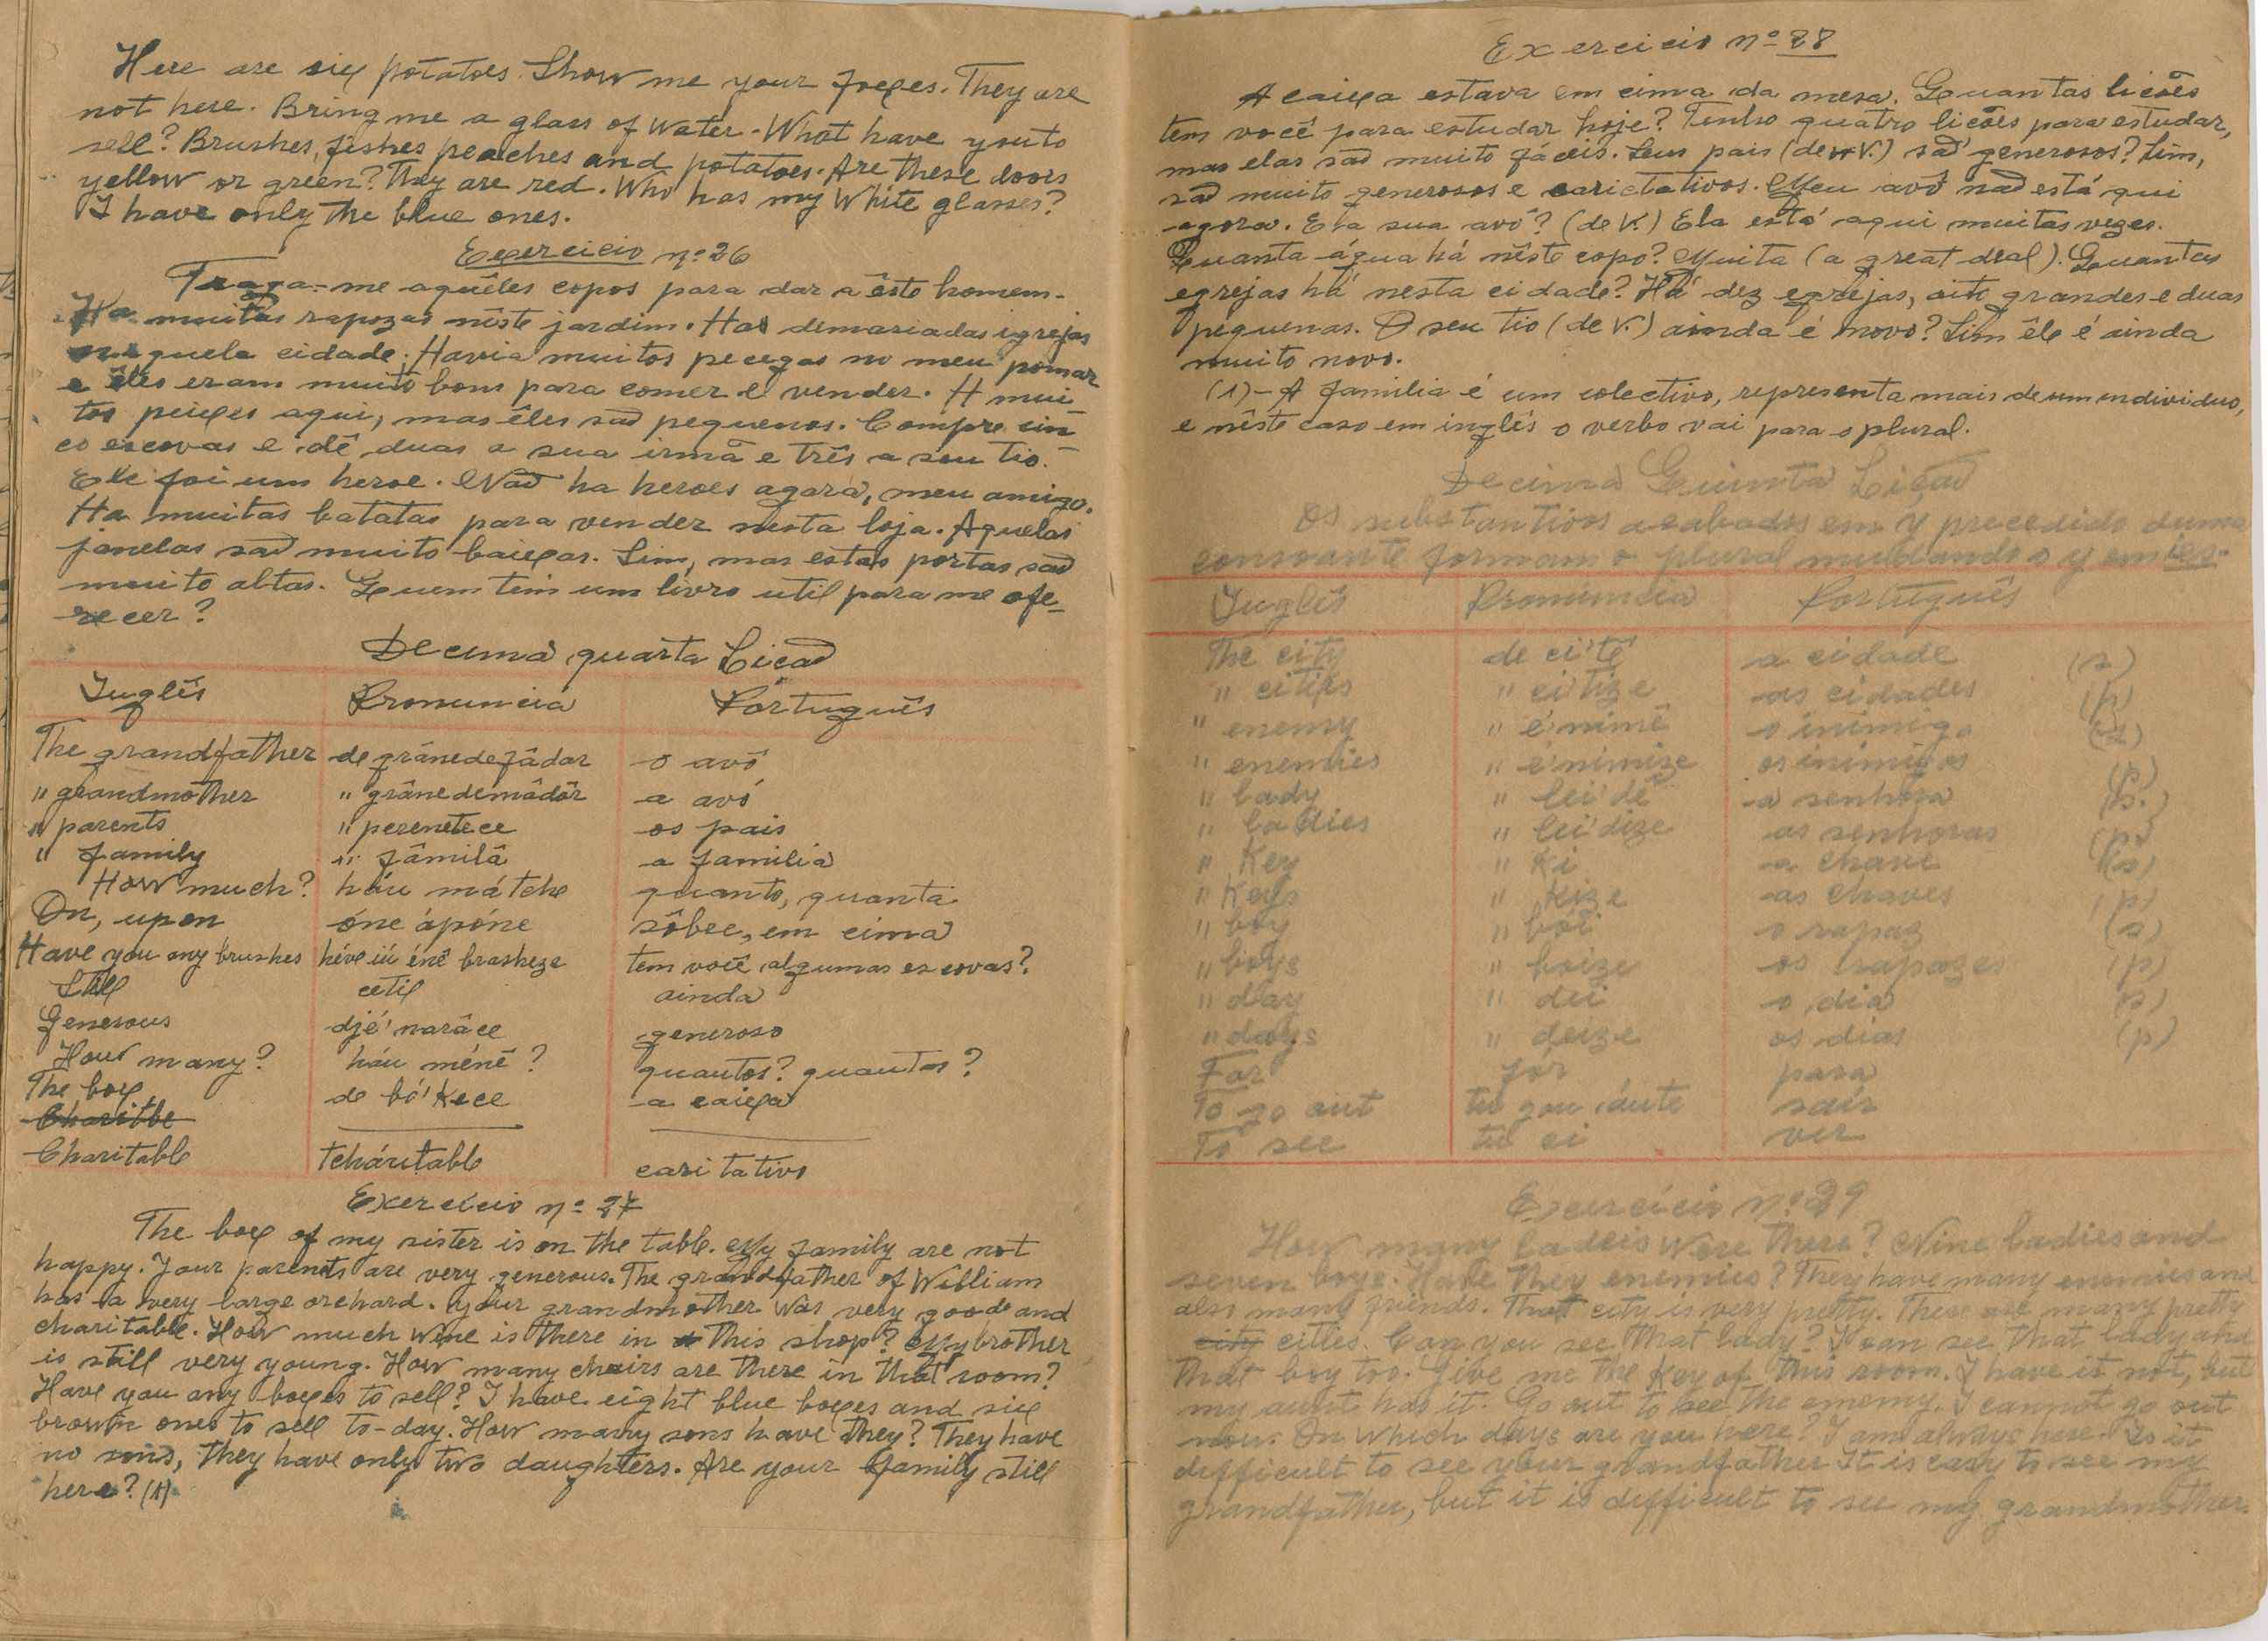 Here are six potatoes. Show me your foxes. They are
not here. Bring me a glass of water. What have you to
sell? Brushes, fishes peaches and potatoes. Are these doors
yellow or green? They are red. Who has my white glasses?
I have only the blue ones.
Exercicio nº 26
Traga-me aquêles copos para dar a êste homem.
Ha muitas rapozas nêste jardim. Ha demasiadas igrejas
naquela cidade. Havia muitos pecegos no meu pomar
e êles eram muito bons para comer e vender. H mui
tos peixes aqui, mas êles são pequenos. Compre cin
co escovas e dê duas a sua irmã e três a seu tio.
Ele foi um heroe. Não ha heroes agora, meu amigo.
Ha muitas batatas para vender nesta loja. Aquelas
janelas são muito baixas. Sim, mas estas portas são
muito altas. Quem tem um livro util para me ofe-
recer?
Decima quarta Licão
Inglês Pronuncia Português
The grandfather de grânedefâdar o avô
" grandmother " grânedemâdâr a avó
" parents " perenetece os pais
" family " fâmilâ a familia
How much? háu mátche quanto, quanta
On, upon óne ápóne sôbre, em cima
Have you any brushes héve iú énê brasheze tem você algumas escovas?
Still cetil ainda
Generous djé'narâce generoso
How many? háu ménê? quantos? quantas?
The box de bó'kece a caixa
Charitbe
Charitable tcháritable caritativo
Exercicio nº 27
The box of my sister is on the table. My family are not
happy. Your parents are very generous. The grandfather of William
has a very large orchard. Your grandmother was very good and
charitable. How much wine is there in this shop? My brother
is still very young. How many chairs are there in that room?
Have you any boxes to sell? I have eight blue boxes and six
brown ones to sell to-day. How many sons have they? They have
no sons, they have only two daughters. Are your family still
here? (1)
Exercicio nº 28
A caixa estava em cima da mesa. Quantas licões
tem você para estudar hoje? Tenho quatro licões para estudar,
mas elas são muito fáceis. Seus pais (de V.) são generosos? Sim,
são muito generosos e carictativos. Meu avô não está qui
agora. E a sua avó? (de V.) Ela está aqui muitas vezes.
Quanta água há nêste copo? Muita (a great deal). Quantas
egrejas há nesta cidade? Há dez egrejas, oito grandes e duas
pequenas. O seu tio (de V.) ainda é novo? Sim êle é ainda
muito novo.
(1) - A familia é um colectivo, representa mais de um individuo,
e nêste caso em inglês o verbo vai para o plural.
Decima Quinta Licão
Os substantivos acabados em y precedido duma
consoante formam o plural mudando o y em ies.
Inglês Pronuncia Português
The city de ci'tê a cidade (s)
" cities " ci'tize as cidades (p)
" enemy " é'nimê o inimigo (s)
" enemies " é'nimize os inimigos (p)
" lady " lei'dê a senhora (s.)
" ladies " lei'dize as senhoras (p)
" Key " Ki a chave (s)
" Keys " Kize as chaves (p)
" boy " bói o rapaz (s)
" boys " boize os rapazes (p)
" day " dei o dia (s)
" days " deize os dias (p)
For fór para
To go out tu gou áute sair
To see tu ci ver
Exercicio nº 29
How many ladeis were there? Nine ladies and
seven boys. Have they enemies? They have many enemies and
also many friends. That city is very pretty. There are many pretty
city cities. Can you see that lady? I can see that lady and
that boy too. Give me the Key of this room. I have it not, but
my aunt has it. Go out to see the enemy. I cannot go out
now. On which days are you here? I am always here. Is it
difficult to see your grandfather It is easy to see my
grandfather, but it is difficult to see my grandmother.